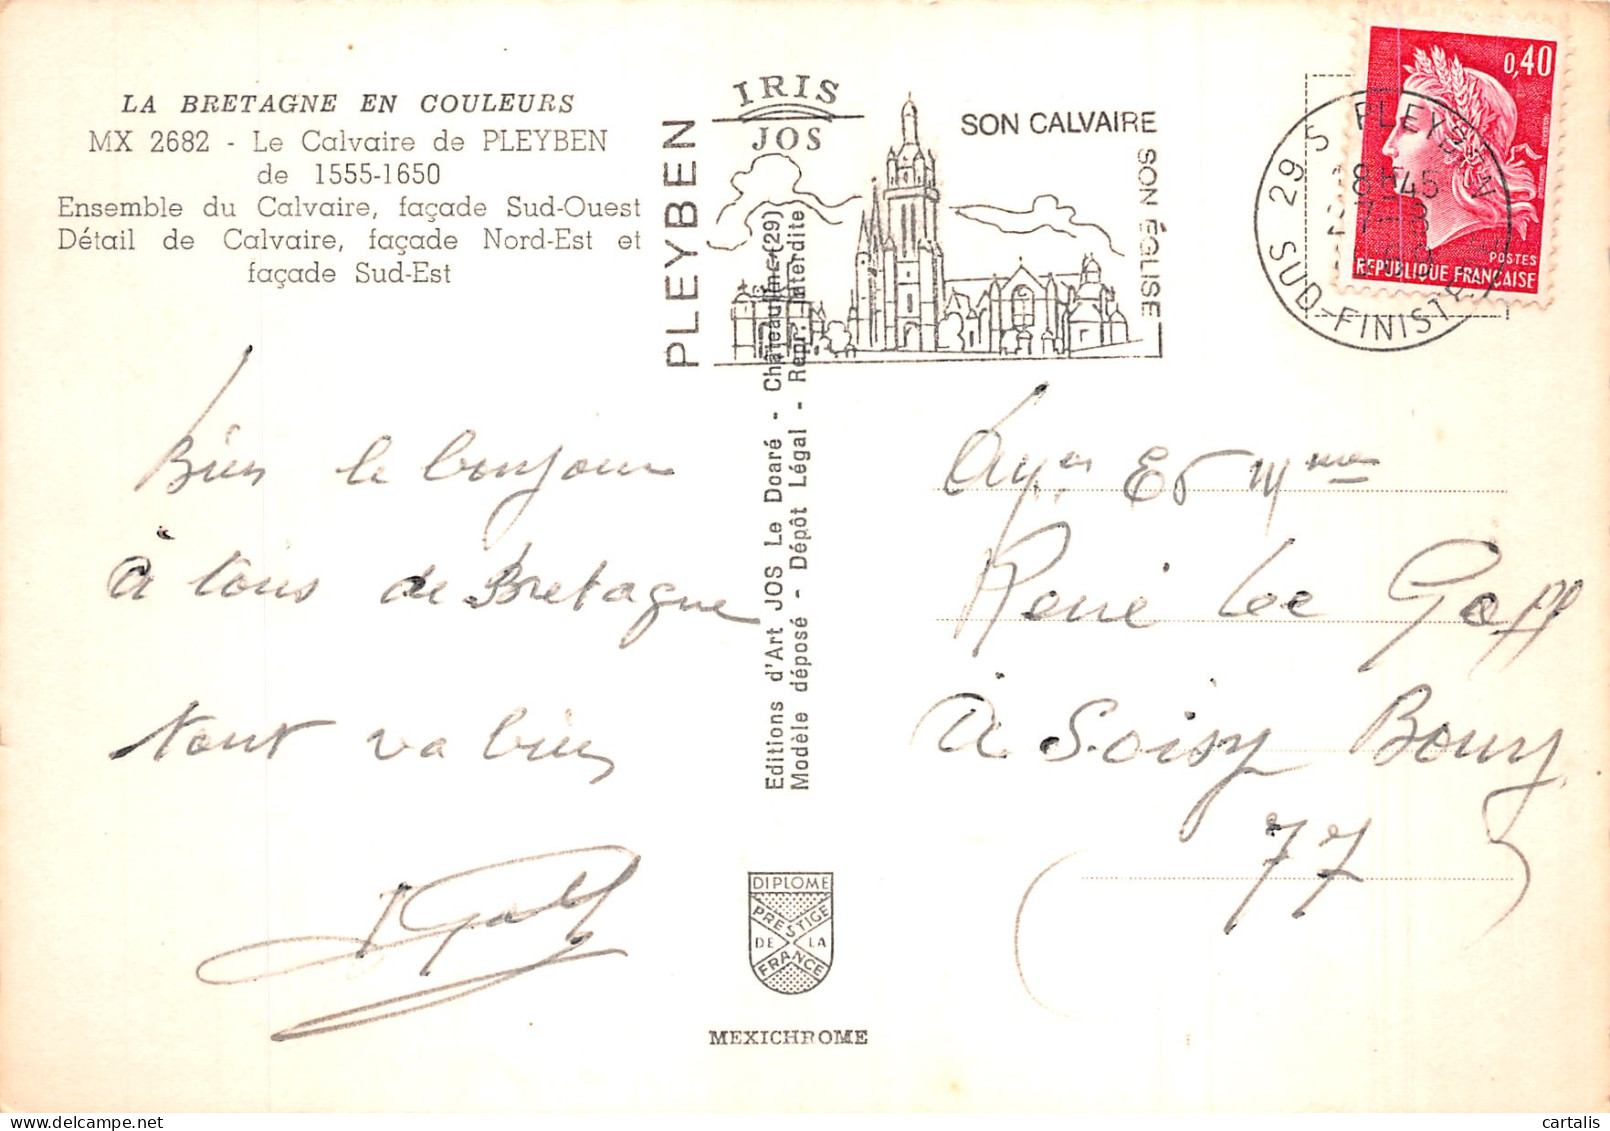 LA BRETAGNE EN COULEURS
MX 2682 - Le Calvaire de PLEYBEN
de 1555-1650
Ensemble du Calvaire, façade Sud-Ouest
Détail de Calvaire, façade Nord-Est et
façade Sud-Est
IRIS
JOS
PLEYBEN
SON CALVAIRE
SON ÉGLISE
0,40
POSTES
REPUBLIQUE FRANÇAISE
29 S PLEYBEN
18H45
SUD-FINISTE
Bien le bonjour
à tous de Bretagne
tout va bien
Editions d'Art JOS Le Doaré - Châteaulin (29)
Modèle déposé - Dépôt Légal - Repr. Interdite
Et Mme
René Le Goff
à Soisy Bouy
77
DIPLOME
PRESTIGE
DE LA
FRANCE
MEXICHROME
cartalis